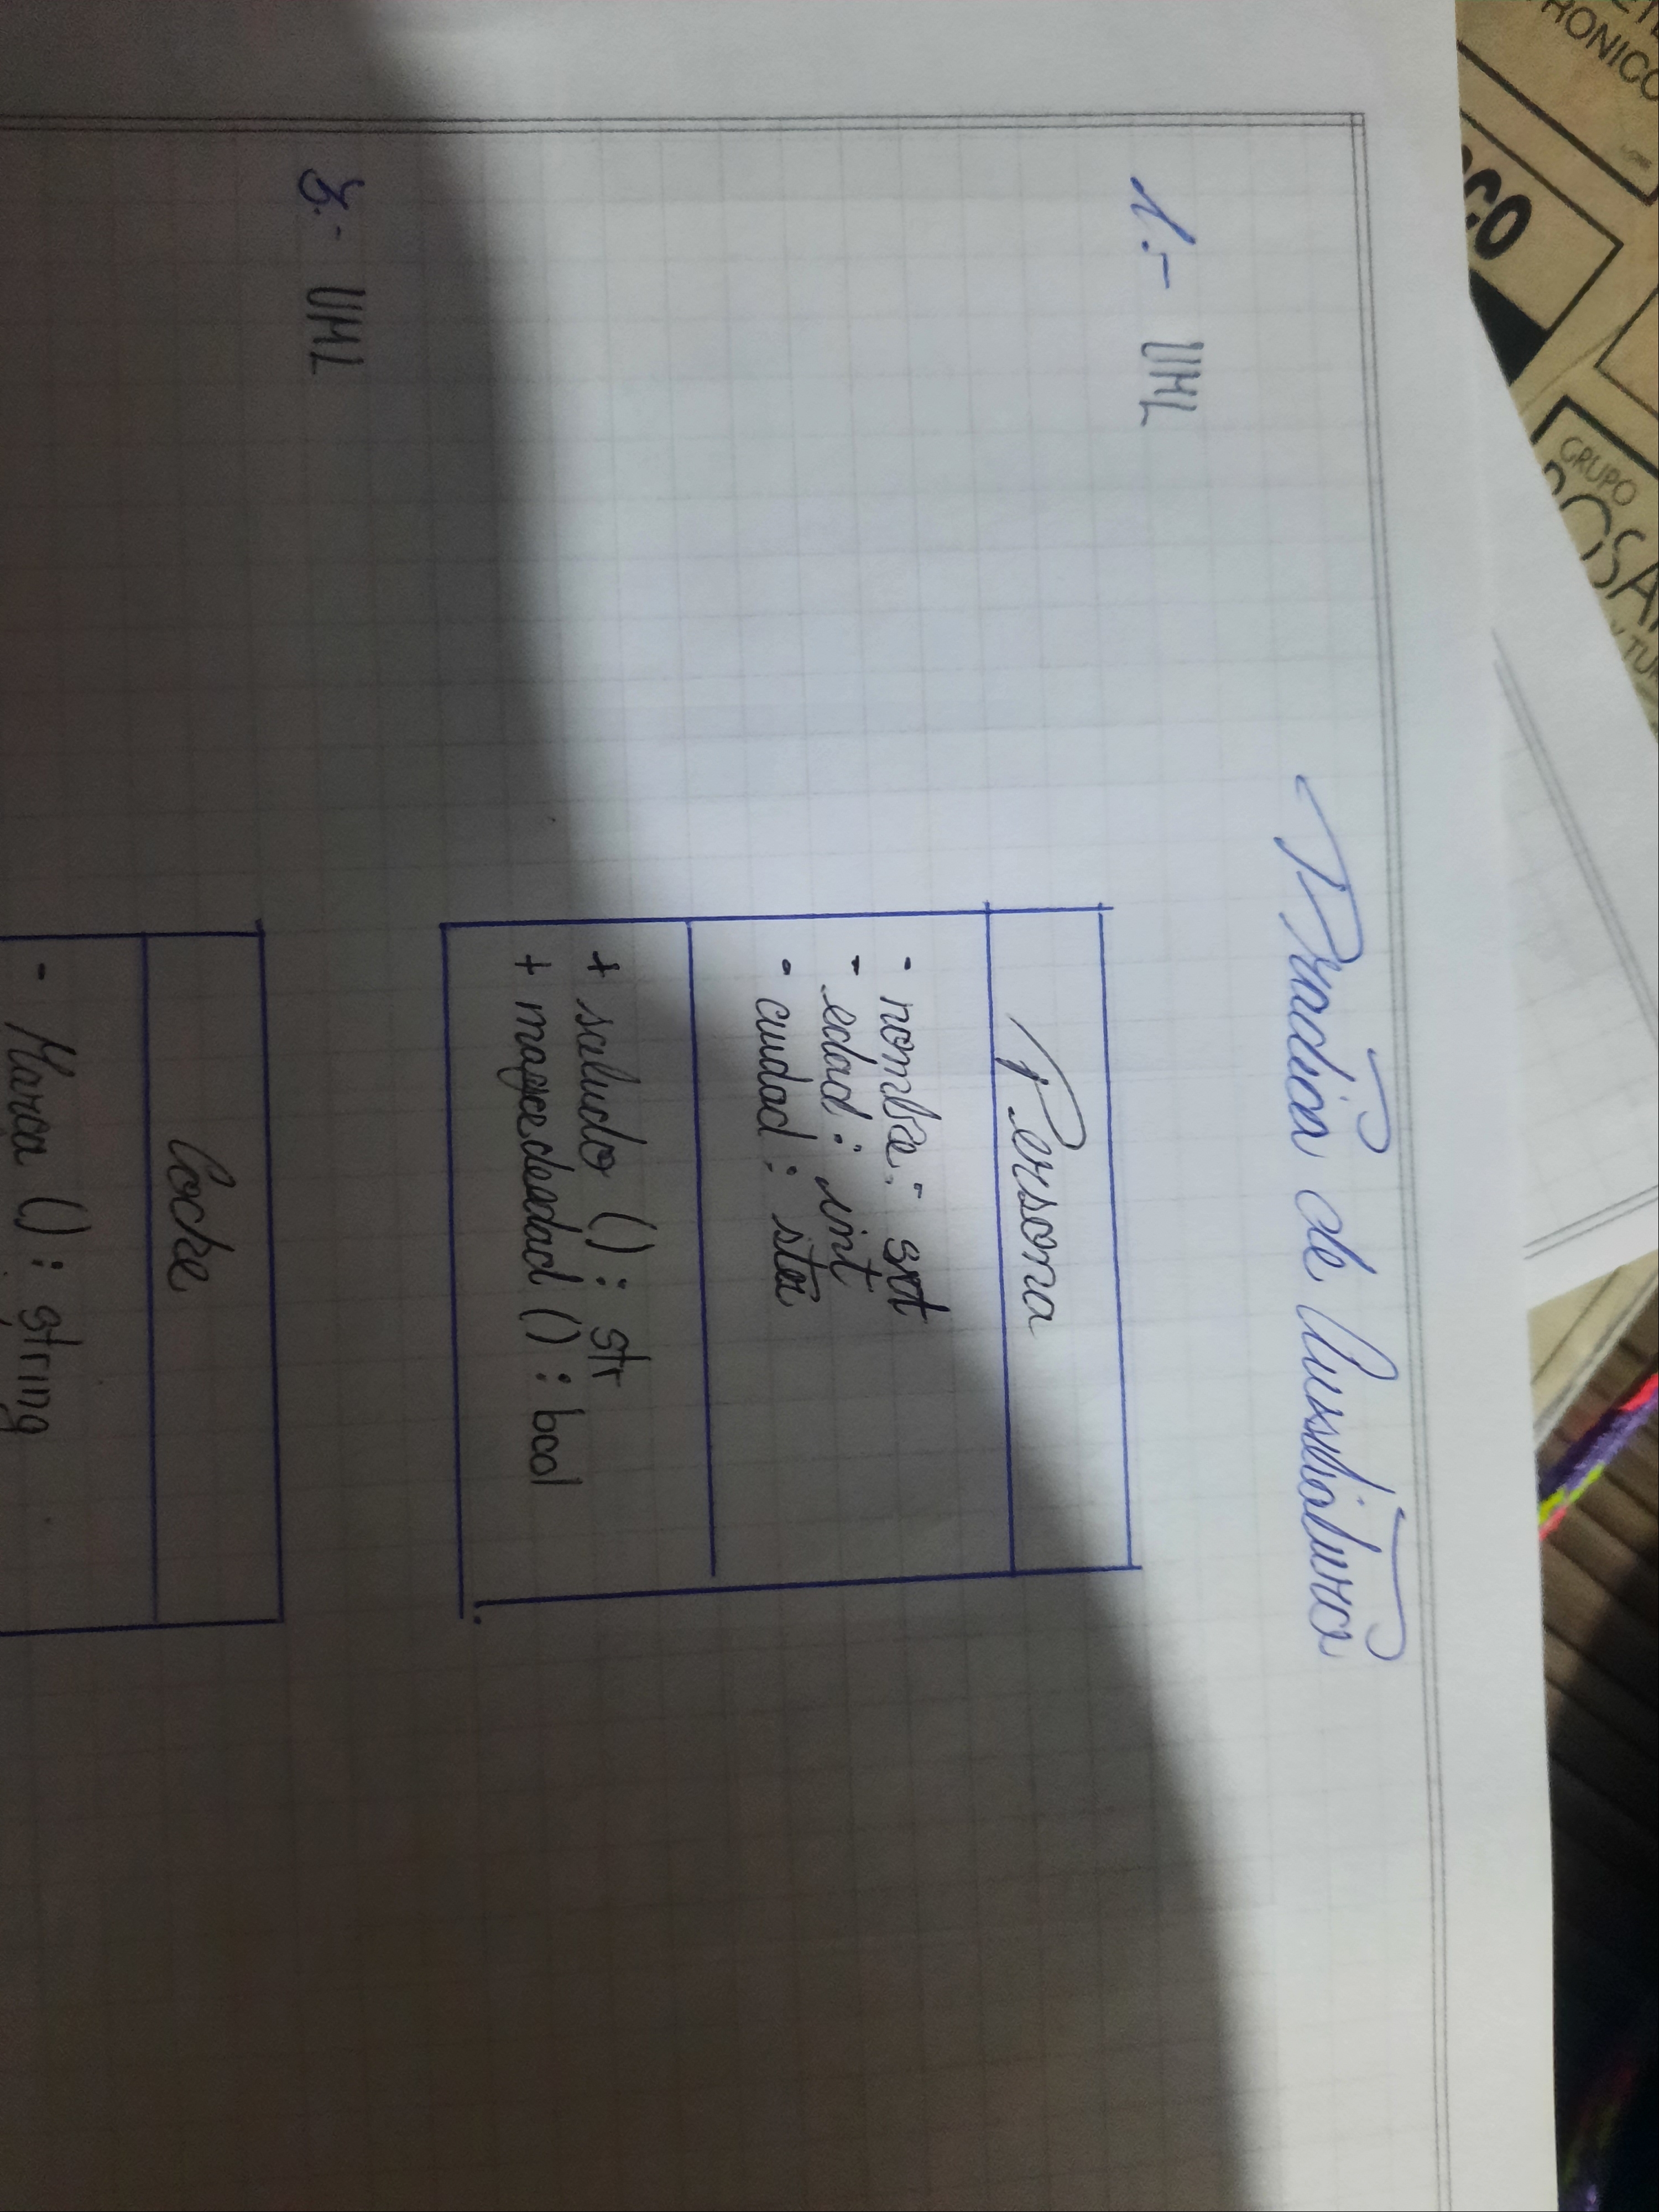 Práctica de Auxiliatura
1.- UML
Persona
- nombre: str
- edad: int
- ciudad: str
+ saludo (): str
+ mayor de edad (): bool
3.- UML
Coche
- Marca (): string
RONICO
CO
GRUPO
ROSA
Y TU